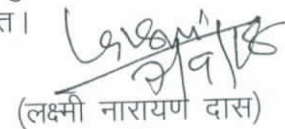 त।
(लक्ष्मी नारायण दास)